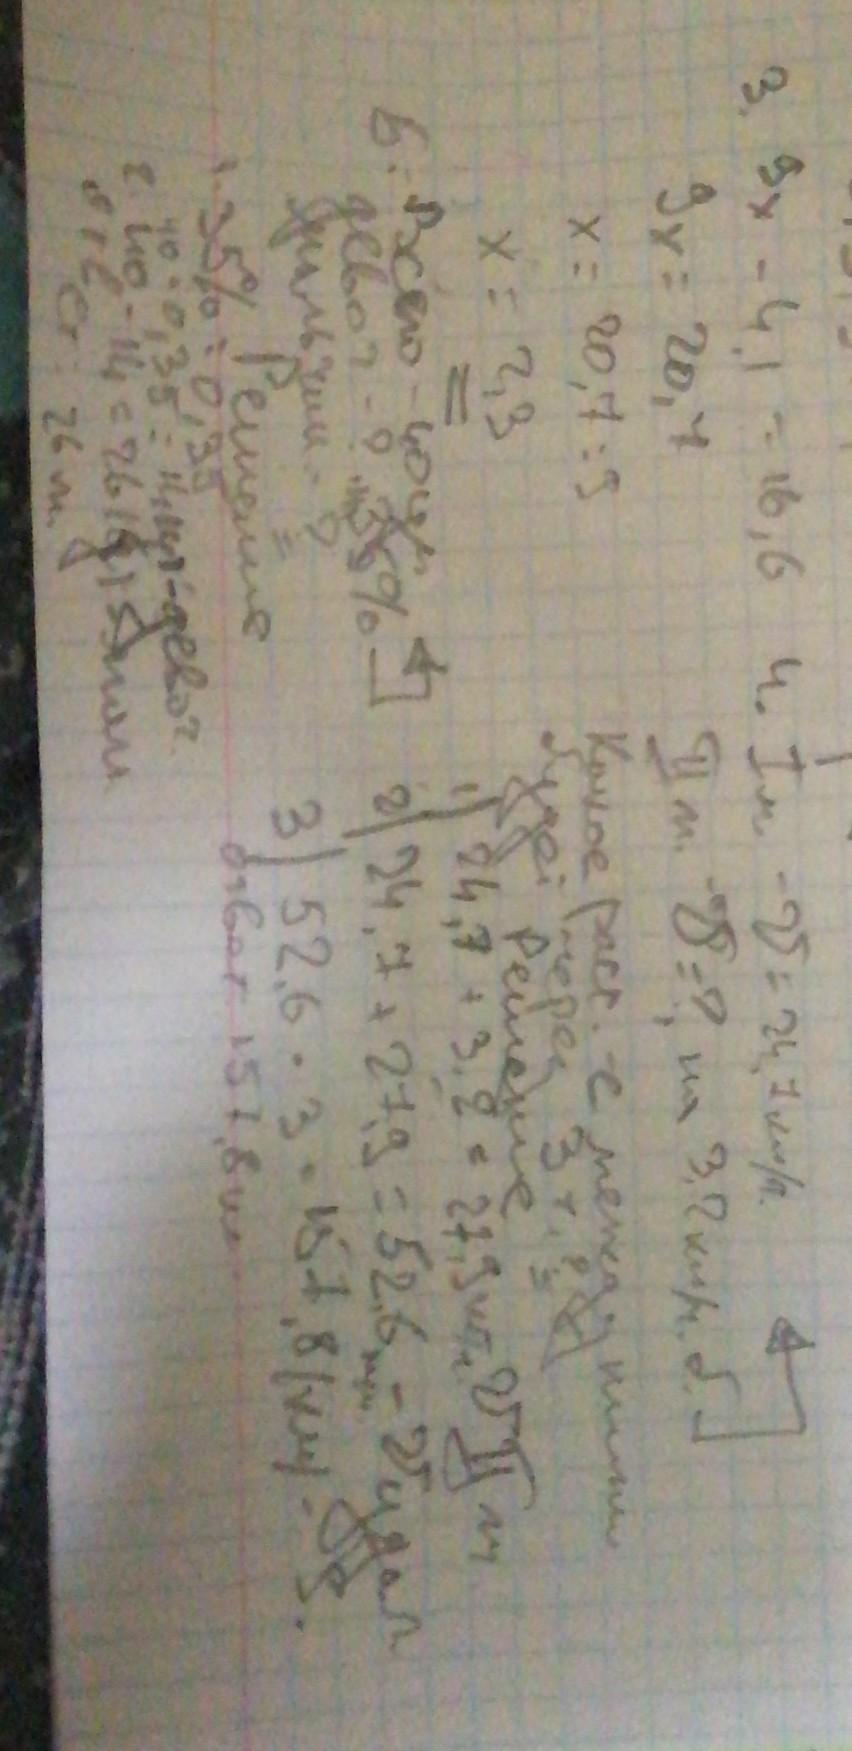 3. 9x - 4,1 = 16,6
9x = 20,7
x = 20,7 : 9
x = 2,3
4. I м - V = 24,7 км/ч.
II м. - V = ?, на 3,2 км/ч. б.
Какое расст. - е между ними
будет через 3 ч.?
Решение
1) 24,7 + 3,2 = 27,9 км/ч V II м
2) 24,7 + 27,9 = 52,6 - V удал
3) 52,6 · 3 = 157,8 (км) - Sр.
Ответ 157,8 км.
6. Всего - 40 уч.
девоч - ? 35%
мальчик. ?
Решение
1. 35% = 0,35
40 · 0,35 = 14 - девоч
2. 40 - 14 = 26
От: 26 м.